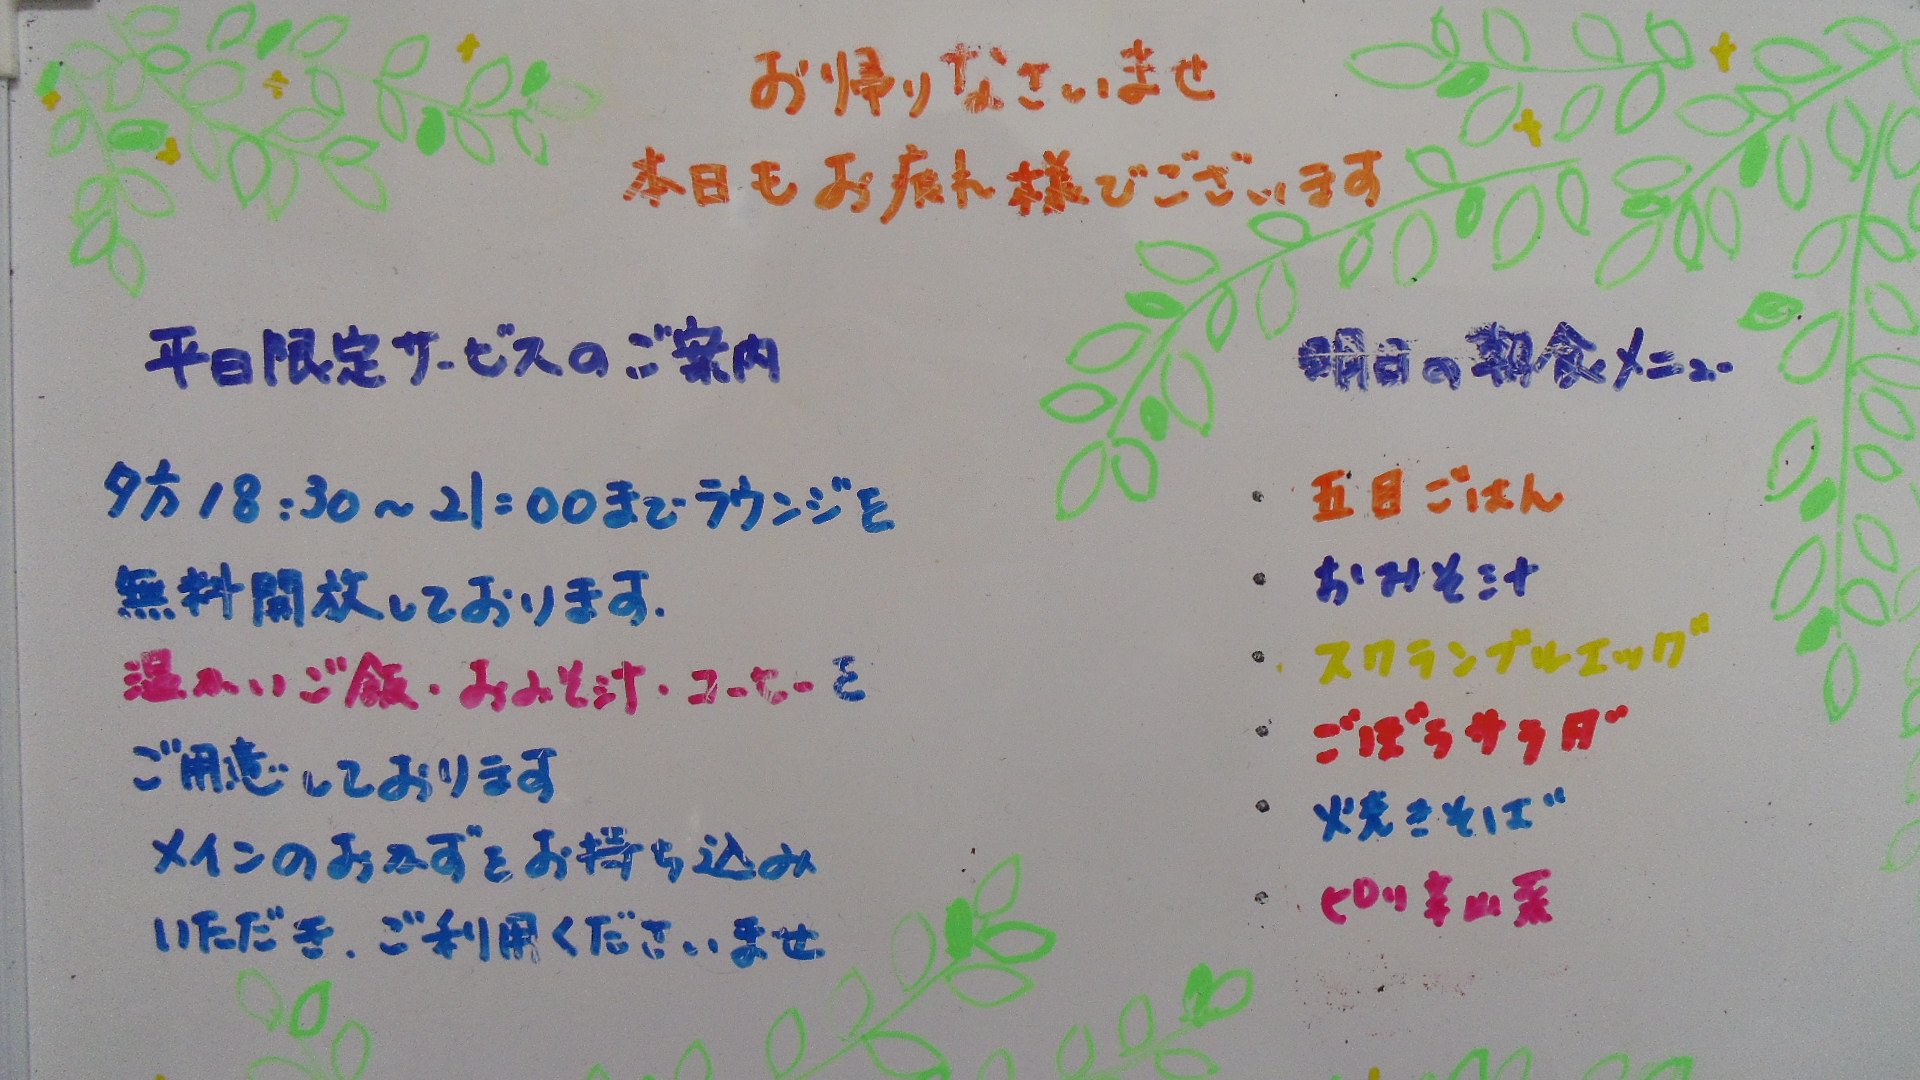 お帰りなさいませ
本日もお疲れ様でございます
平日限定サービスのご案内
夕方18:30～21:00までラウンジを
無料開放しております.
温かいご飯・おみそ汁・コーヒーを
ご用意しております
メインのおかずをお持ち込み
いただき.ご利用くださいませ
明日の朝食メニュー
・五目ごはん
・おみそ汁
・スクランブルエッグ
・ごぼうサラダ
・焼きそば
・ピリ辛山菜